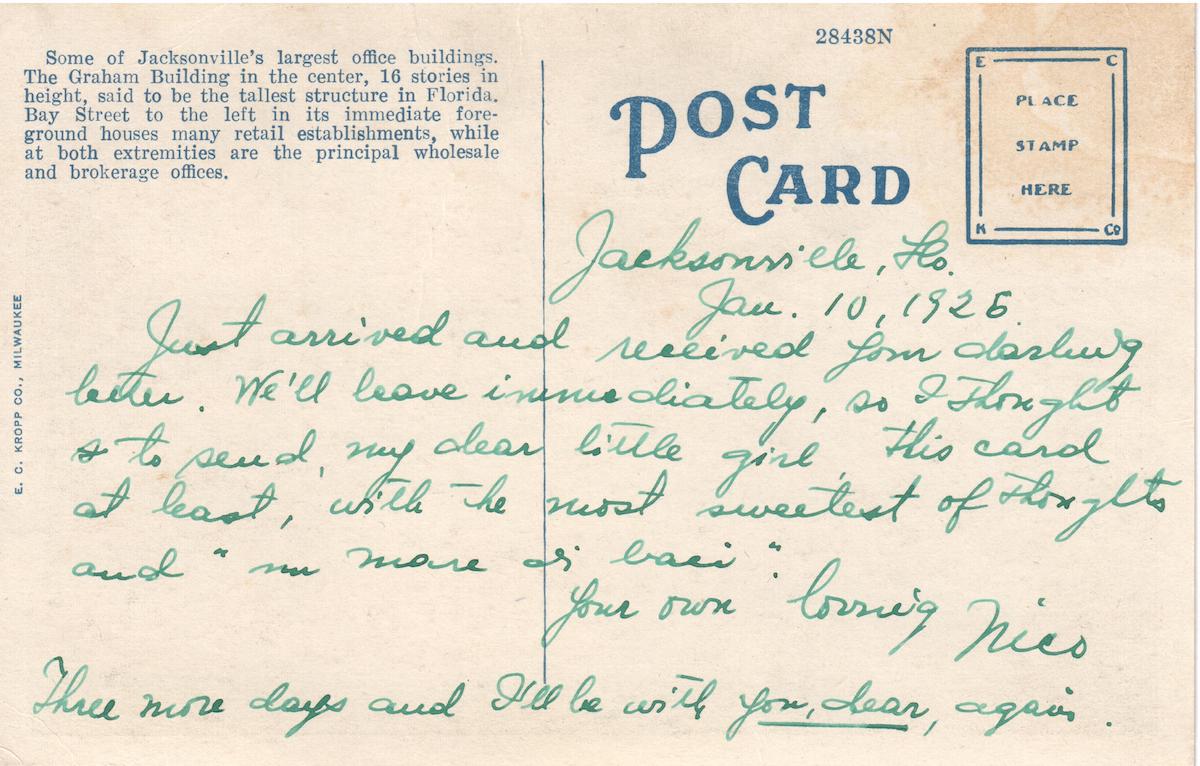 Some of Jacksonville's largest office buildings.
The Graham Building in the center, 16 stories in
height, said to be the tallest structure in Florida.
Bay Street to the left in its immediate fore-
ground houses many retail establishments, while
at both extremities are the principal wholesale
and brokerage offices.
E. C. KROPP CO., MILWAUKEE
28438N
POST
CARD
E C
PLACE
STAMP
HERE
K Co
Jacksonville, Flo.
Jan. 10, 1926
Just arrived and received your darling
letter. We'll leave immediately, so I thought
to send, my dear little girl, this card
at least, with the most sweetest of thoughts
and "un mare di baci".
Your own loving Nico
Three more days and I'll be with you, dear, again.